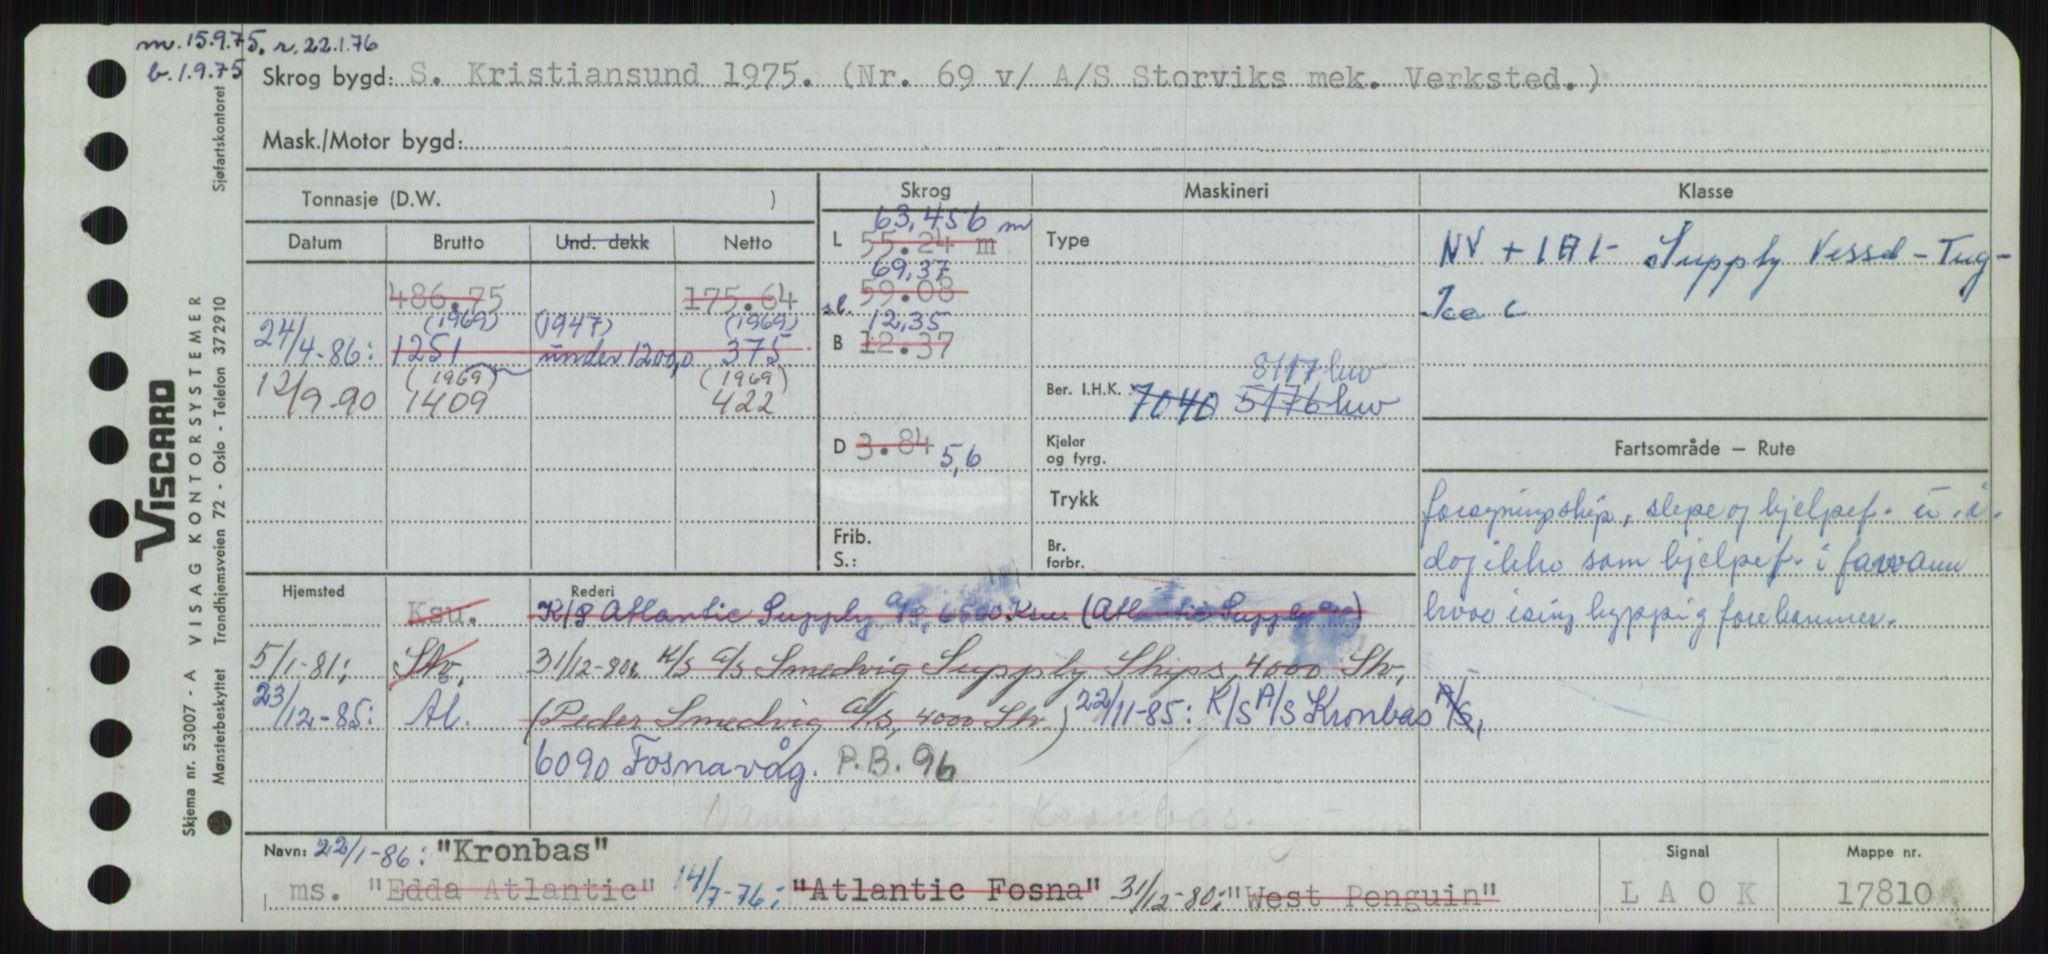 m. 15.9.75. r. 22.1.76
b. 1.9.75
Skrog bygd: S. Kristiansund 1975. (Nr. 69 v/ A/S Storviks mek. Verksted.)
Mask./Motor bygd:
Tonnasje (D.W. )
Skrog
Maskineri
Klasse
Datum Brutto Und. dekk Netto
486.75 175.64
(1969) (1947) (1969)
24/4-86: 1251 under 1200,0 375
(1969) (1969)
12/9-90 1409 422
63,456 m
L 55.24 m
69,37
sl. 59.08
12,35
B 12.37
D 3.84 5,6
Frib.
S.:
Type
8117 hw
Ber. I.H.K. 7040 5176 hw
Kjeler
og fyrg.
Trykk
Br.
forbr.
NV + 1A1- Supply Vessel - Tug -
Ice C
Fartsområde — Rute
forsyningsskip, slepe og hjelpef. u.i.
dog ikke som hjelpef. i farvann
hvor ising hyppig forekommer.
Hjemsted Rederi
Ksu. K/S Atlantic Supply A/S, 6500 Ksu. (Atlantic Supply A/S)
5/1-81: Stv. 31/12-80: K/S A/S Smedvig Supply Ships, 4000 Stv.
23/12-85: Al. (Peder Smedvig A/S, 4000 Stv.) 22/11-85: K/S A/S Kronbas A/S,
6090 Fosnavåg. P.B. 96
Kronbas.
Navn: 22/1-86: "Kronbas"
ms. "Edda Atlantic" 14/7-76: "Atlantic Fosna" 31/12-80: "West Penguin"
Signal
L A O K
Mappe nr.
17810
VISCARD
Skjema nr. 53007 - A VISAG KONTORSYSTEMER
Mønsterbeskyttet Trondhjemsveien 72 - Oslo - Telefon 372910 Sjøfartskontoret